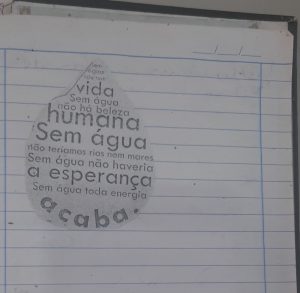 Sem
vida
Sem água
não há beleza
humana
Sem água
não teríamos rios nem mares
Sem água não haveria
a esperança
Sem água toda energia
acaba.